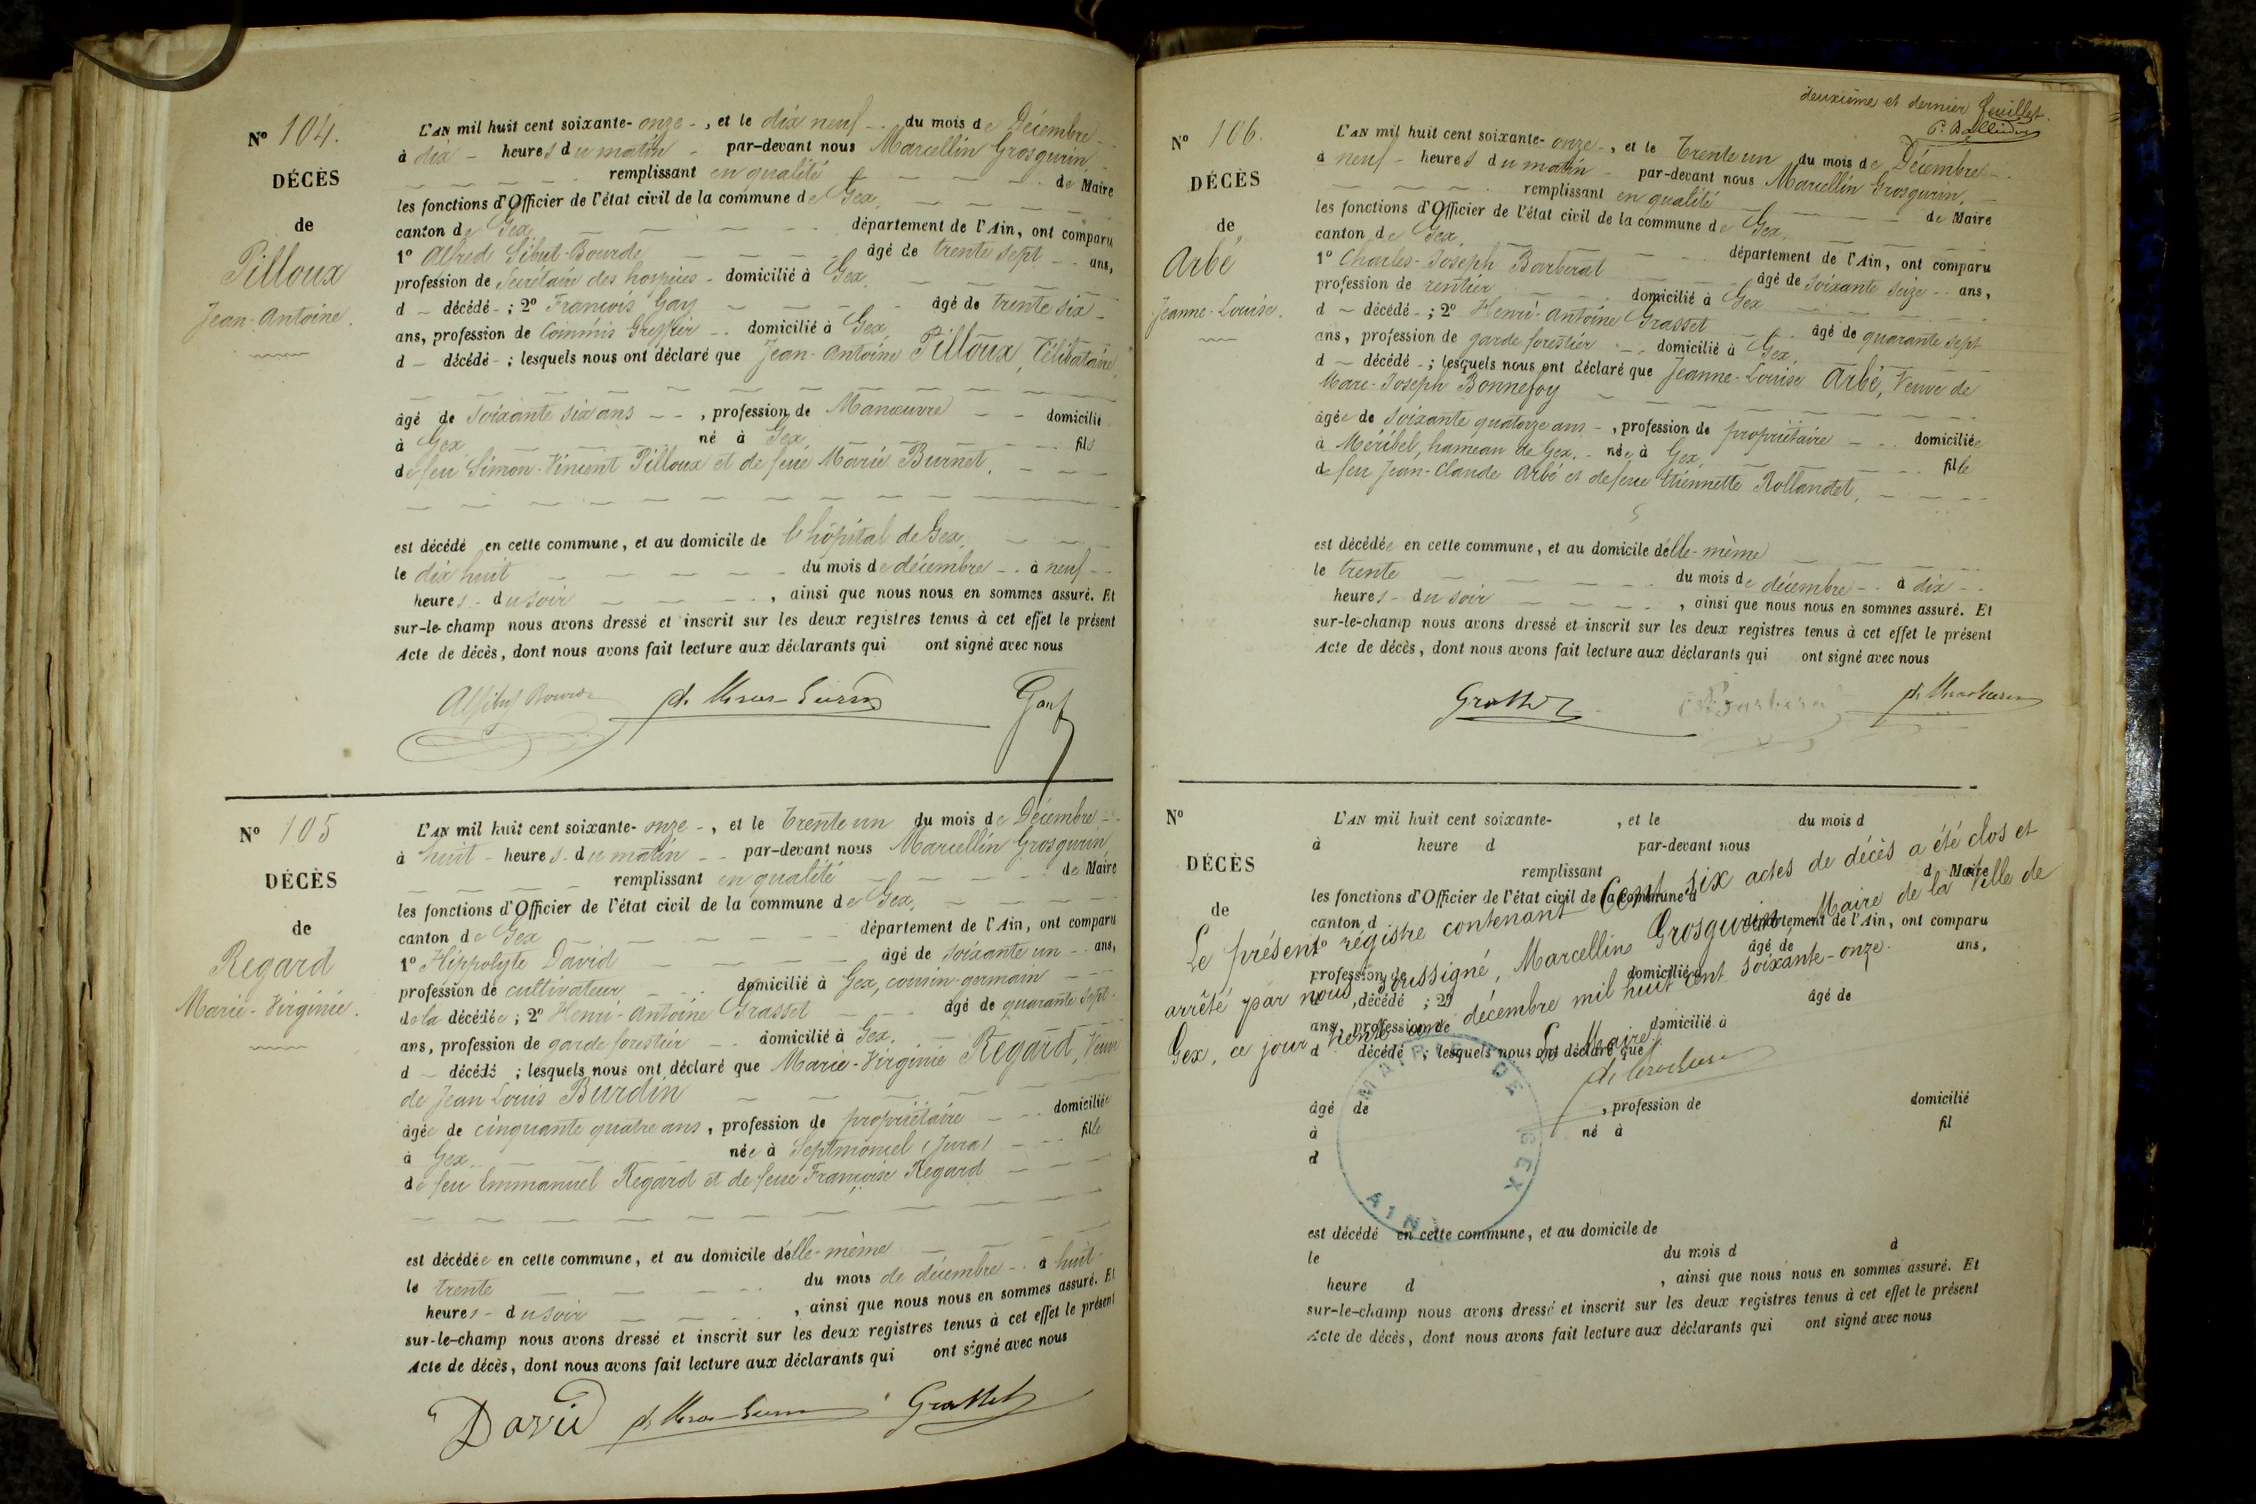 N° 104.
DÉCÈS
de
Pilloux
Jean-Antoine.
L'AN mil huit cent soixante-onze, et le dix neuf du mois de Décembre
à dix heures du matin par-devant nous Marcellin Grosgurin,
remplissant en qualité de Maire
les fonctions d'Officier de l'état civil de la commune de Gex,
canton de Gex département de l'Ain, ont comparu
1° Alfred Sibut-Bourde âgé de trente sept ans,
profession de Secrétaire des hospices domicilié à Gex,
d décédé ; 2° François Gay âgé de trente six
ans, profession de Commis Greffier domicilié à Gex,
d décédé ; lesquels nous ont déclaré que Jean-Antoine Pilloux, Célibataire,
âgé de soixante six ans, profession de Manœuvre domicilié
à Gex né à Gex, fils
de feu Simon-Vincent Pilloux et de feue Marie Burnet,
est décédé en cette commune, et au domicile de l'hôpital de Gex,
le dix huit du mois de décembre à neuf
heures du soir, ainsi que nous nous en sommes assuré. Et
sur-le-champ nous avons dressé et inscrit sur les deux registres tenus à cet effet le présent
Acte de décès, dont nous avons fait lecture aux déclarants qui ont signé avec nous
N° 105
DÉCÈS
de
Regard
Marie-Virginie.
L'AN mil huit cent soixante-onze, et le Trente un du mois de Décembre
à huit heures du matin par-devant nous Marcellin Grosgurin,
remplissant en qualité de Maire
les fonctions d'Officier de l'état civil de la commune de Gex,
canton de Gex département de l'Ain, ont comparu
1° Hippolyte David âgé de soixante un ans,
profession de cultivateur domicilié à Gex, cousin-germain
de la décédée ; 2° Henri-Antoine Grasset âgé de quarante sept
ans, profession de garde forestier domicilié à Gex,
d décédé ; lesquels nous ont déclaré que Marie-Virginie Regard, Veuve
de Jean Louis Burdin
âgée de cinquante quatre ans, profession de propriétaire domiciliée
à Gex née à Septmoncel (Jura) fille
de feu Emmanuel Regard et de feue Françoise Regard
est décédée en cette commune, et au domicile d'elle-même
le trente du mois de décembre à huit
heures du soir, ainsi que nous nous en sommes assuré. Et
sur-le-champ nous avons dressé et inscrit sur les deux registres tenus à cet effet le présent
Acte de décès, dont nous avons fait lecture aux déclarants qui ont signé avec nous
David Grasset
deuxième et dernier feuillet.
N° 106.
DÉCÈS
de
Arbé
Jeanne-Louise.
L'AN mil huit cent soixante-onze, et le Trente un du mois de Décembre
à neuf heures du matin par-devant nous Marcellin Grosgurin,
remplissant en qualité de Maire
les fonctions d'Officier de l'état civil de la commune de Gex,
canton de Gex, département de l'Ain, ont comparu
1° Charles-Joseph Barberat âgé de soixante seize ans,
profession de rentier domicilié à Gex
d décédé ; 2° Henri-Antoine Grasset âgé de quarante sept
ans, profession de garde forestier domicilié à Gex,
d décédé ; lesquels nous ont déclaré que Jeanne-Louise Arbé, Veuve de
Marc-Joseph Bonnefoy
âgée de soixante quatorze ans, profession de propriétaire domiciliée
à Méribel, hameau de Gex, née à Gex, fille
de feu Jean-Claude Arbé et de feue Etiennette Rollandet,
est décédée en cette commune, et au domicile d'elle-même
le trente du mois de décembre à dix
heures du soir, ainsi que nous nous en sommes assuré. Et
sur-le-champ nous avons dressé et inscrit sur les deux registres tenus à cet effet le présent
Acte de décès, dont nous avons fait lecture aux déclarants qui ont signé avec nous
Grasset
N°
DÉCÈS
de
L'AN mil huit cent soixante- , et le du mois d
à heure d par-devant nous
remplissant d Maire
les fonctions d'Officier de l'état civil de la commune d
canton d département de l'Ain, ont comparu
1° âgé de ans,
profession de domicilié à
d décédé ; 2° âgé de
ans, profession de domicilié à
d décédé ; lesquels nous ont déclaré que
Le présent régistre contenant Cent six actes de décès a été clos et
arrêté par nous soussigné, Marcellin Grosgurin Maire de la Ville de
Gex, ce jour trente un décembre mil huit cent soixante-onze.
Le Maire
MAIRIE DE GEX
AIN
âgé de , profession de domicilié
à né à fil
d
est décédé en cette commune, et au domicile de
le du mois d à
heure d , ainsi que nous nous en sommes assuré. Et
sur-le-champ nous avons dressé et inscrit sur les deux registres tenus à cet effet le présent
Acte de décès, dont nous avons fait lecture aux déclarants qui ont signé avec nous